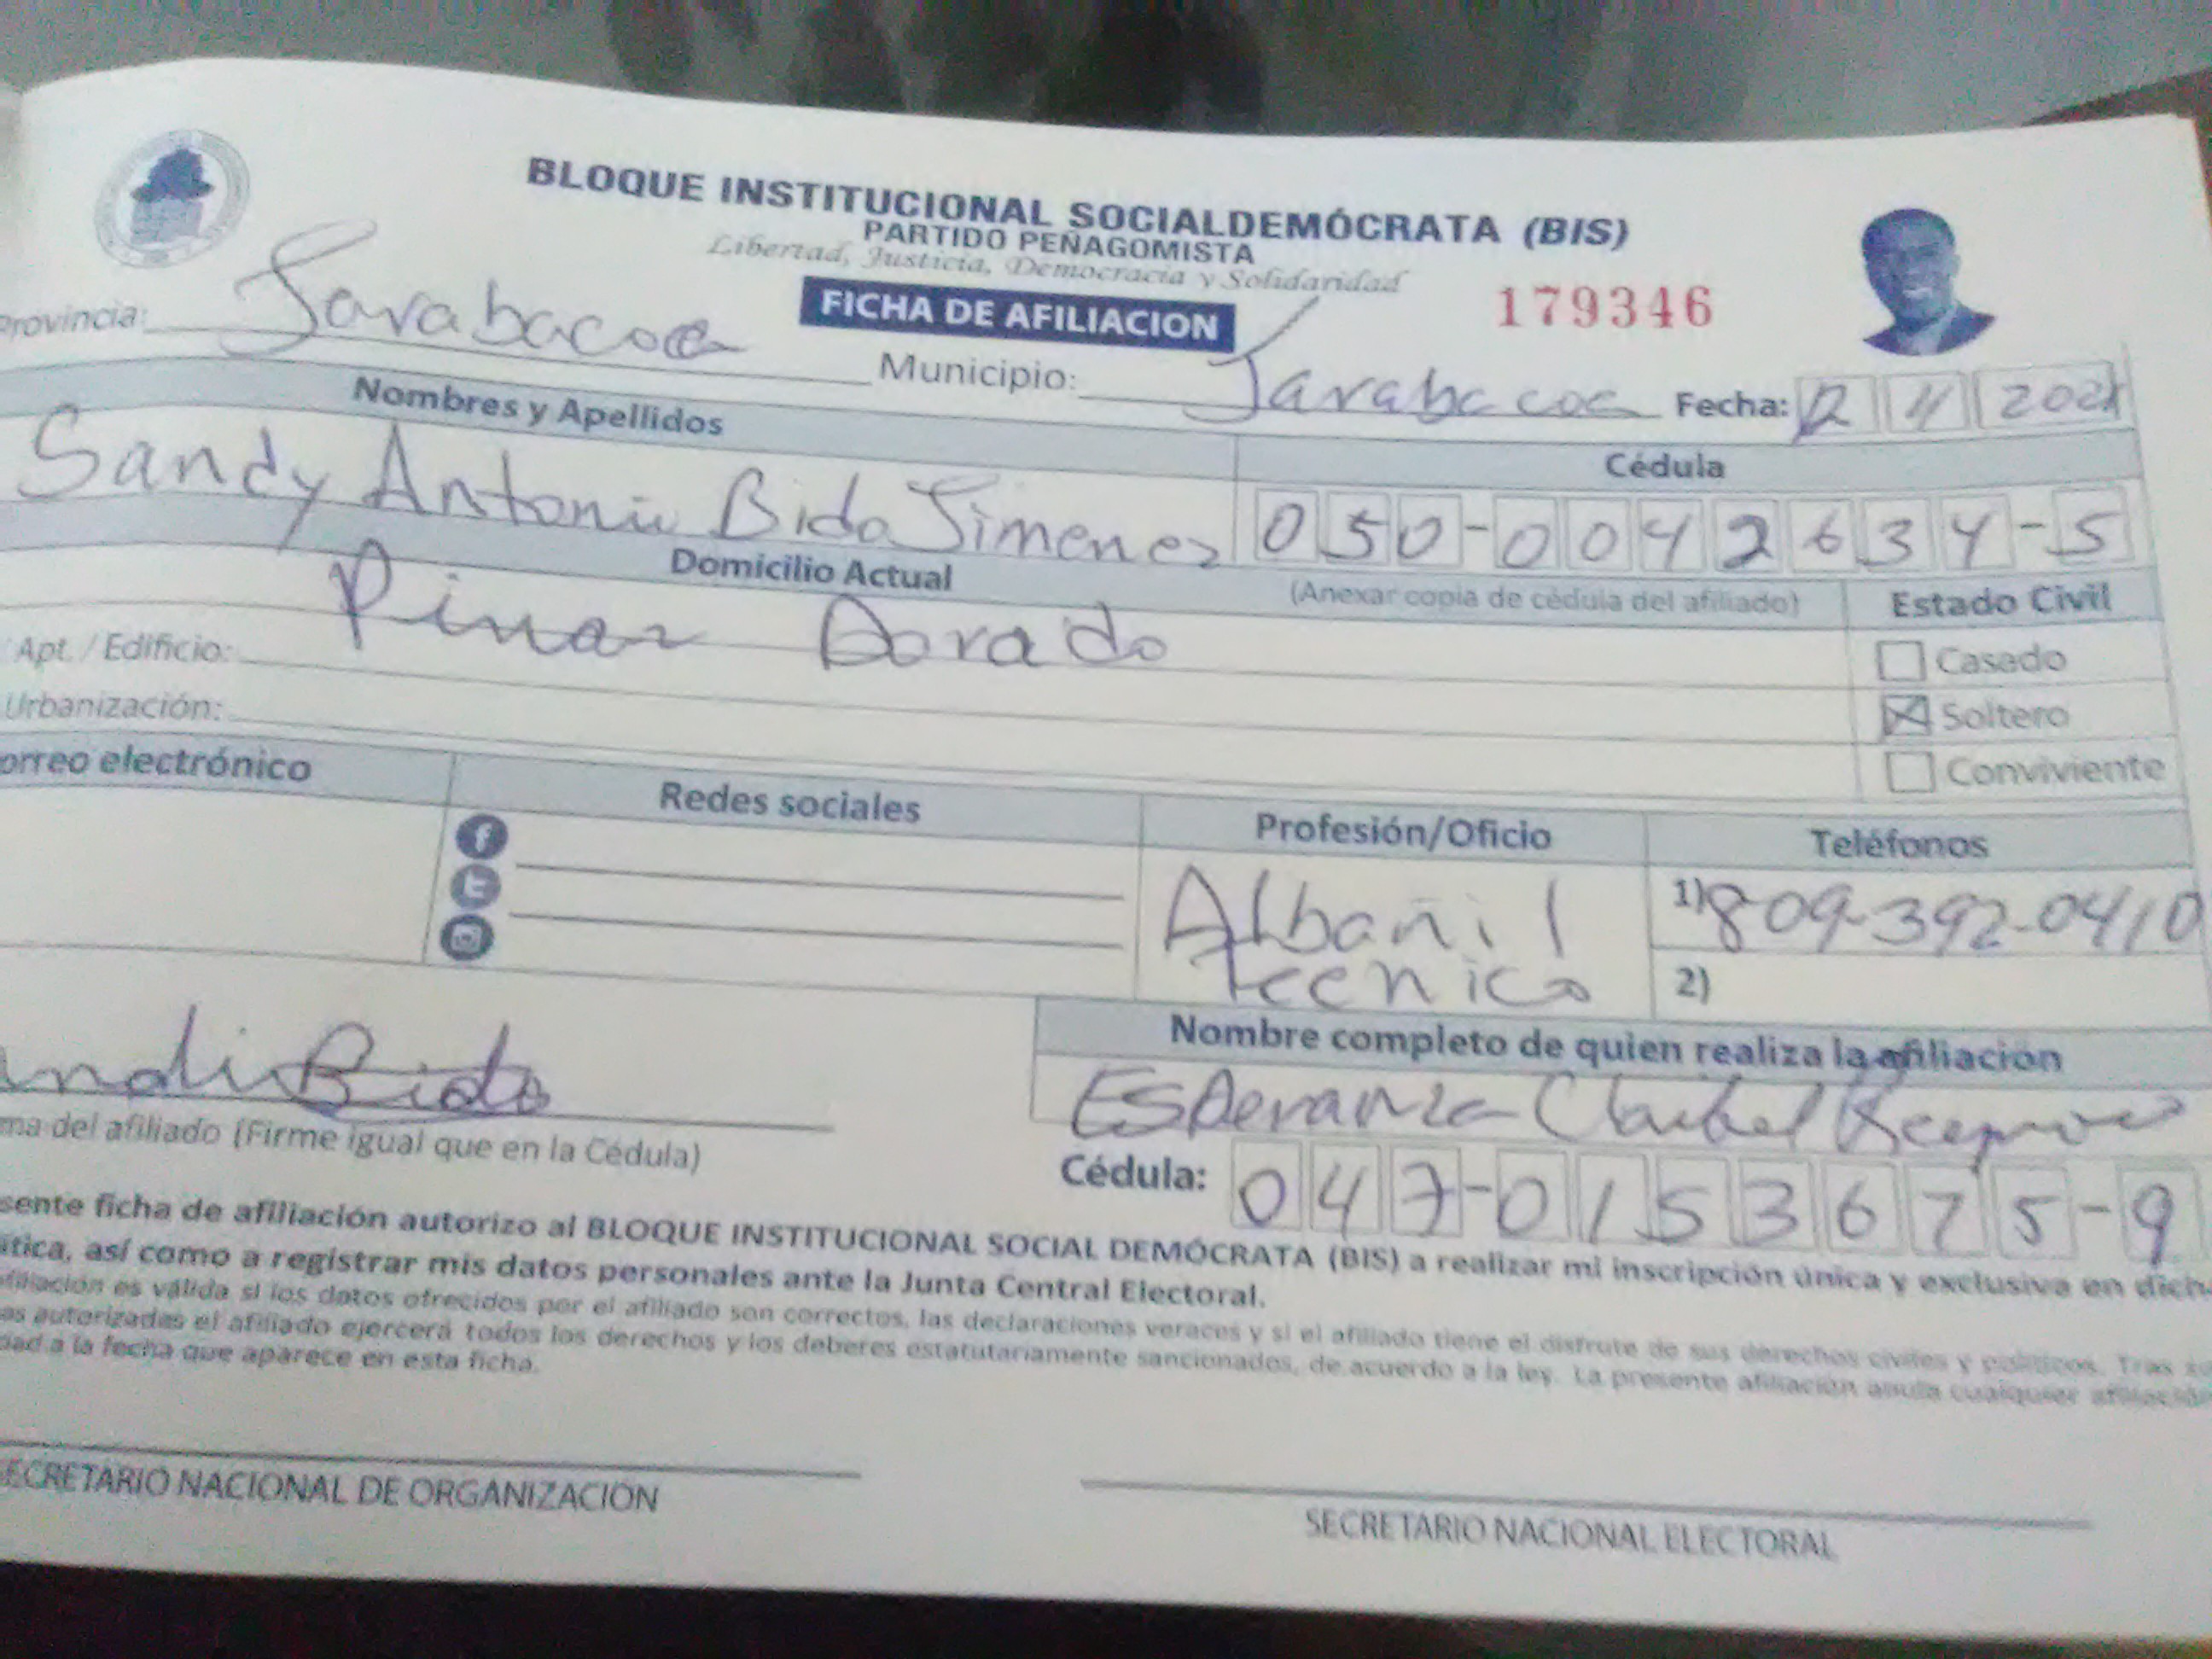 BLOQUE INSTITUCIONAL SOCIALDEMÓCRATA (BIS)
PARTIDO PEÑAGOMISTA
Libertad, Justicia, Democracia y Solidaridad
FICHA DE AFILIACION
179346
Provincia: Jarabacoa
Municipio: Jarabacoa Fecha: 12 11 2021
Nombres y Apellidos
Cédula
Sandy Antonio Bido Jimenez 050-0042634-5
Domicilio Actual
(Anexar copia de cédula del afiliado)
Estado Civil
Pinar Dorado
Apt. / Edificio:
Casado
Urbanización:
Soltero
Conviviente
orreo electrónico
Redes sociales
Profesión/Oficio
Teléfonos
Albañil
Tecnico
1) 809-392-0410
2)
andi Bido
ma del afiliado (Firme igual que en la Cédula)
Nombre completo de quien realiza la afiliacion
Esperanza Claribel
Cédula: 047-0153675-9
sente ficha de afiliación autorizo al BLOQUE INSTITUCIONAL SOCIAL DEMÓCRATA (BIS) a realizar mi inscripción única y exclusiva en dich
ítica, así como a registrar mis datos personales ante la Junta Central Electoral.
afiliación es válida si los datos ofrecidos por el afiliado son correctos, las declaraciones veraces y si el afiliado tiene el disfrute de sus derechos civiles y políticos. Tras
as autorizadas el afiliado ejercerá todos los derechos y los deberes estatutariamente sancionados, de acuerdo a la ley. La presente afiliación anula cualquier afiliación
dad a la fecha que aparece en esta ficha.
ECRETARIO NACIONAL DE ORGANIZACIÓN
SECRETARIO NACIONAL ELECTORAL